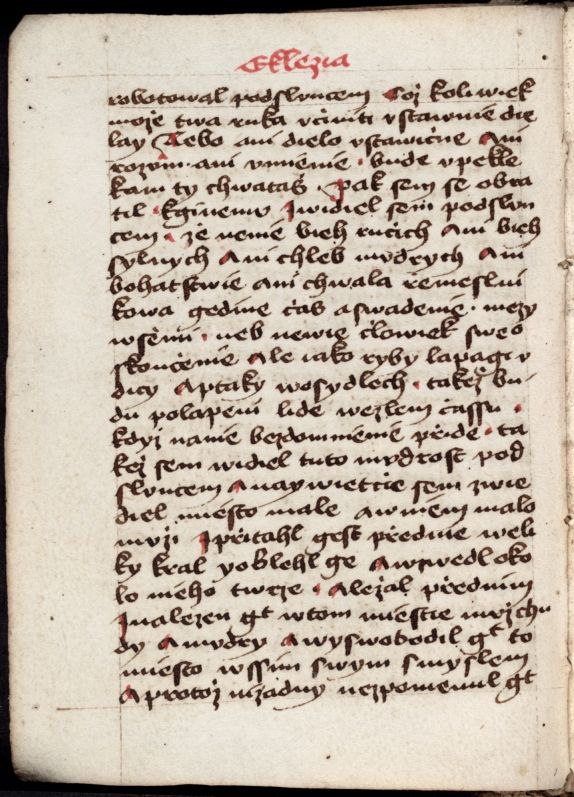 Eklezia
robotowal podslvncem Coż koli wiek
może twa ruka vcziniti vstawnie die
lay Nebo ani dielo vstawiczne Ani
rozom ani vmienie bude vpekle
kam ty chwataß Pak sem se obra
til kginemv Jwidiel sem podslvn
cem że nenie bieh rucich Ani bieh
sylnych Ani chleb mvdrych Ani
bohatstwie ani chwala remeslni
kowa gedine czaß aswadenie mezy
wsemi neb newie cżlowiek sweo
skonczenie Ale iako ryby lapagi v
dicy Aptaky wosydlech takeż bu
du polapeni lide wezlem czassu
kdyż nanie bezdomnienie przide ta
keż sem widiel tuto mvdrost pod
slvncem Anaywietcie sem zwie
diel miesto male Awniem malo
mvżi Jpritahl gest prednie weli
ky kral yoblehl ge Awzwedl oko
lo nieho twrze Ależal przednim
Jnalezen gt wtom miestie mvż chu
dy Amvdry Awyswobodil gt to
miesto wssim swym smyslem
Aprotoż niżadny nezpomenul gt